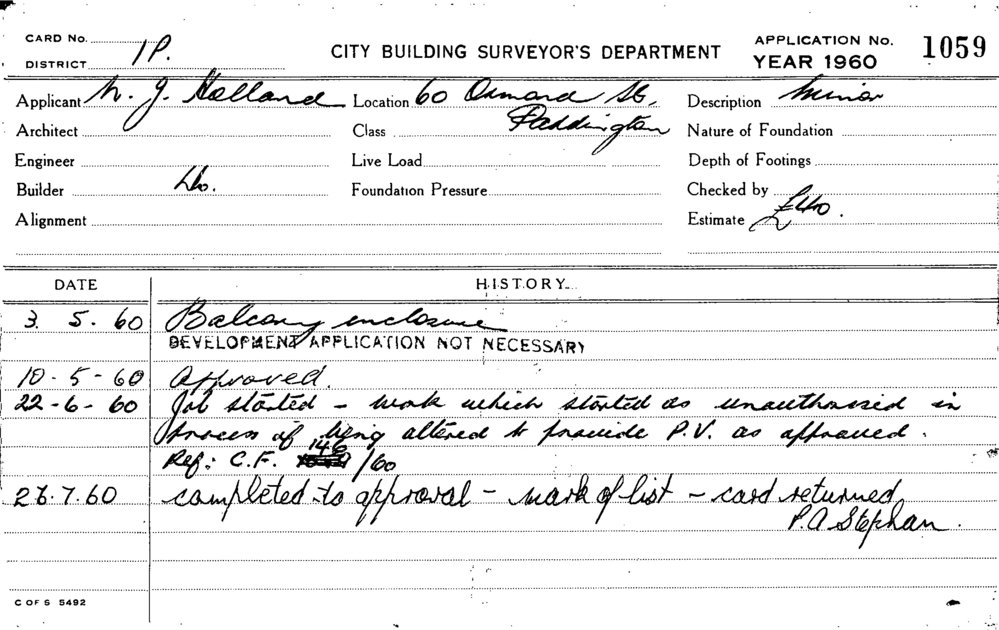 CARD No.
DISTRICT 1P.
CITY BUILDING SURVEYOR'S DEPARTMENT
APPLICATION No. 1059
YEAR 1960
Applicant N. J. Holland Location 60 Ormond St, Description Minor
Architect Class Paddington Nature of Foundation
Engineer Live Load Depth of Footings
Builder Do. Foundation Pressure Checked by
Alignment Estimate £40.
DATE HISTORY
3. 5. 60 Balcony enclosure
DEVELOPMENT APPLICATION NOT NECESSARY
10-5-60 Approved.
22-6-60 Job started - work which started as unauthorised in
process of being altered to provide P.V. as approved.
Ref: C.F. 146/60
26.7.60 completed to approval - mark of list - card returned
P.A Stephan.
C OF S 5492